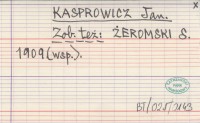 x
KASPROWICZ Jan.
Zob. też: ŻEROMSKI S.
1909 (wsp.).
BJ/021/1163